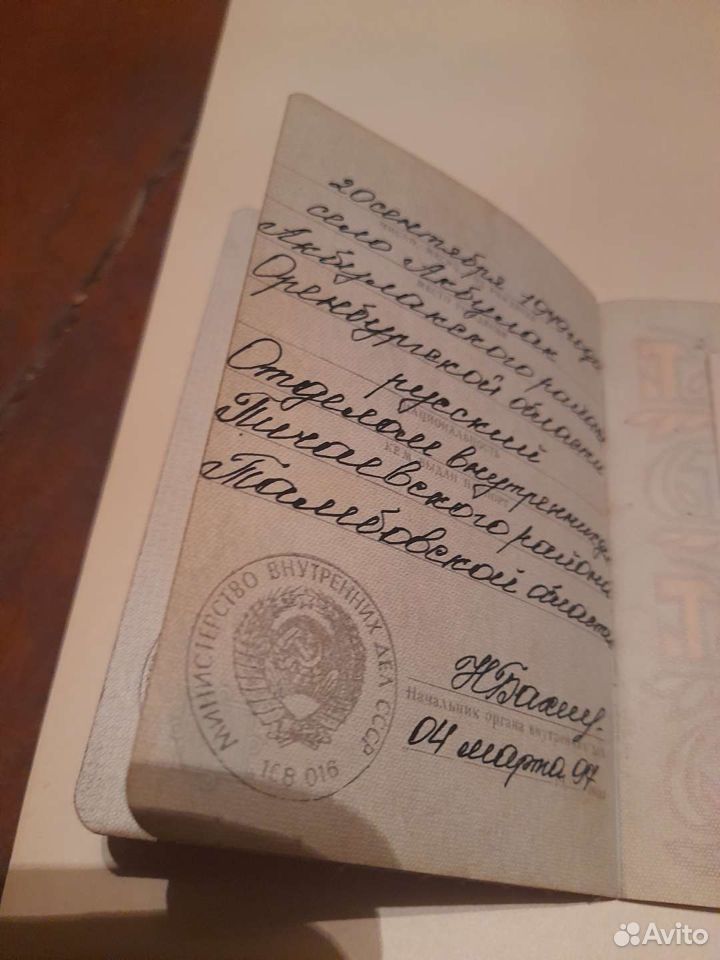 20 сентября
село Акбулак
Акбулакского района
Оренбургской области
русский
НАЦИОНАЛЬНОСТЬ
Отделом внутренних дел
КЕМ ВЫДАН ПАСПОРТ
Пичаевского района
Тамбовской области
МИНИСТЕРСТВО ВНУТРЕННИХ ДЕЛ СССР
016
Начальник органа внутренних дел
04 марта 97
Avito